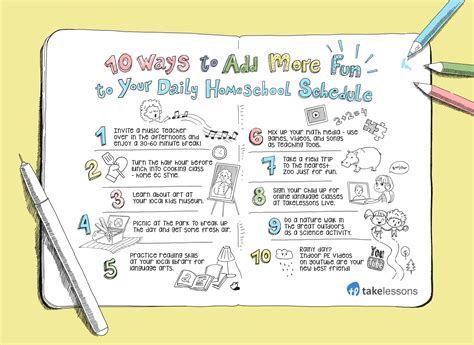 10 Ways to Add More Fun
to Your Daily Homeschool Schedule
1
Invite a music teacher
over in the afternoons and
enjoy a 30-60 minute break!
2
Turn the half hour before
lunch into cooking class
- home ec style.
3
Learn about art at
your local kids museum.
4
Picnic at the park to break up
the day and get some fresh air.
5
Practice reading skills
at your local library for
language arts.
6
Mix up your math media - use
games, videos, and songs
as teaching tools.
2+2=4
7
Take a field trip
to the nearest
zoo just for fun.
8
Sign your child up for
online language classes
at TakeLessons Live.
9
Do a nature walk in
the great outdoors
as a science activity.
10
Rainy day?
Indoor PE videos
on YouTube are your
new best friend!
You
Tube
takelessons